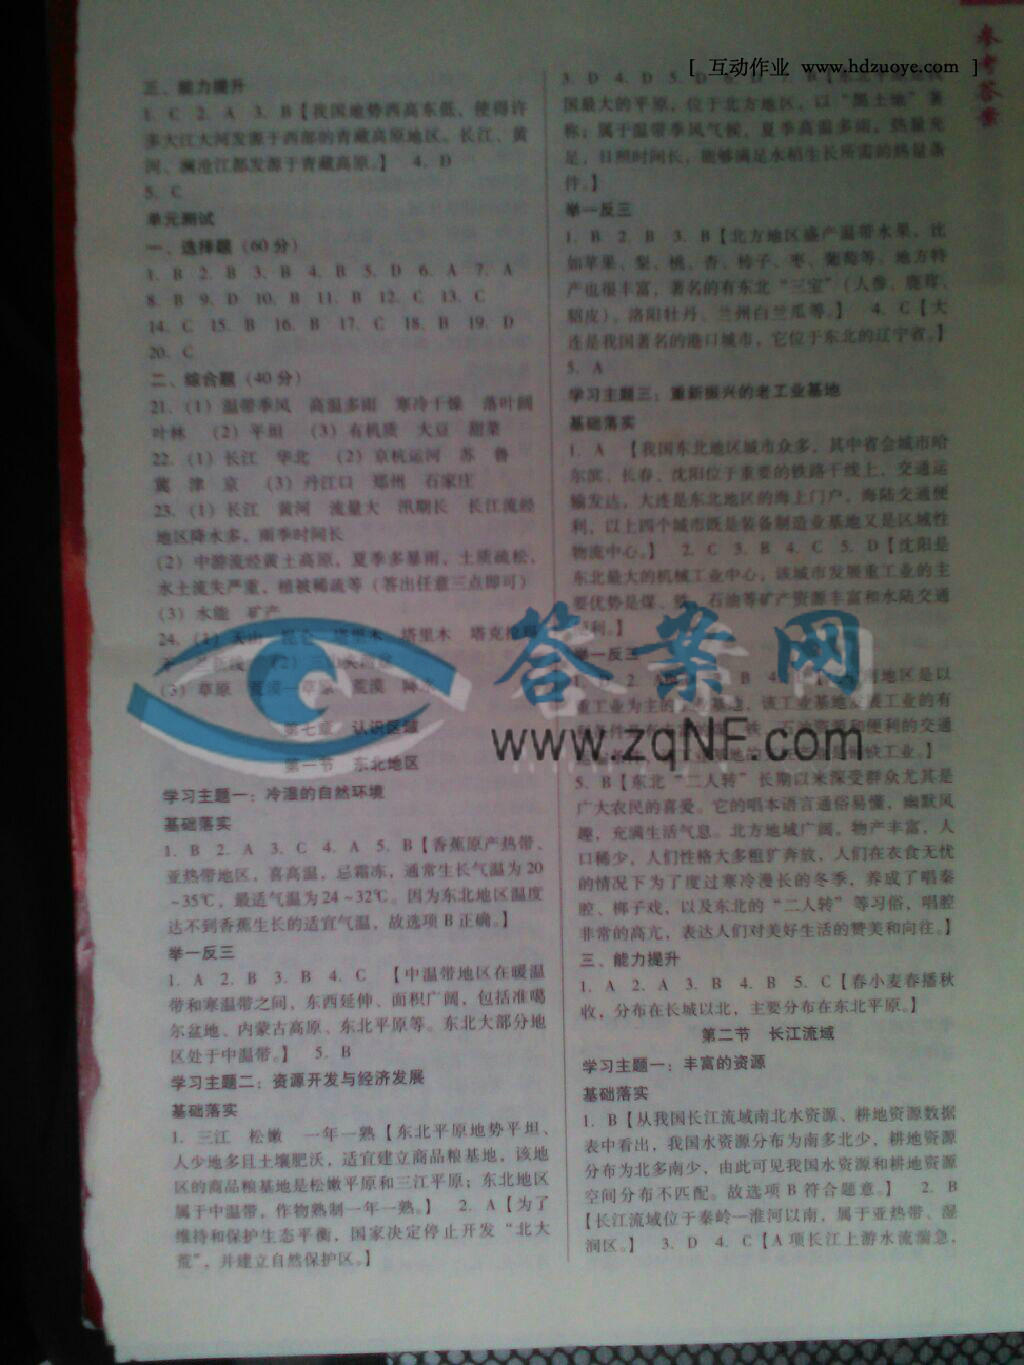 参考答案
[ 互动作业 www.hdzuoye.com ]
三、能力提升
1. C 2. A 3. B【我国地势西高东低，使得许
多大江大河发源于西部的青藏高原地区。长江、黄
河、澜沧江都发源于青藏高原。】 4. D
5. C
单元测试
一、选择题（60分）
1. B 2. B 3. B 4. B 5. D 6. A 7. A
8. B 9. D 10. B 11. B 12. C 13. C
14. C 15. B 16. B 17. C 18. B 19. D
20. C
二、综合题（40分）
21. （1）温带季风 高温多雨 寒冷干燥 落叶阔
叶林 （2）平坦 （3）有机质 大豆 甜菜
22. （1）长江 华北 （2）京杭运河 苏 鲁
冀 津 京 （3）丹江口 郑州 石家庄
23. （1）长江 黄河 流量大 汛期长 长江流经
地区降水多，雨季时间长
（2）中游流经黄土高原，夏季多暴雨，土质疏松，
水土流失严重，植被稀疏等（答出任意三点即可）
（3）水能 矿产
24. （1）天山 昆仑 塔里木 塔里木 塔克拉玛
（3）草原 荒漠 草原 荒漠 降水
第七章 认识区域
第一节 东北地区
学习主题一：冷湿的自然环境
基础落实
1. B 2. A 3. C 4. A 5. B【香蕉原产热带、
亚热带地区，喜高温，忌霜冻，通常生长气温为20
~35℃，最适气温为24~32℃。因为东北地区温度
达不到香蕉生长的适宜气温，故选项B正确。】
举一反三
1. A 2. B 3. B 4. C 【中温带地区在暖温
带和寒温带之间，东西延伸、面积广阔，包括准噶
尔盆地、内蒙古高原、东北平原等。东北大部分地
区处于中温带。】 5. B
学习主题二：资源开发与经济发展
基础落实
1. 三江 松嫩 一年一熟【东北平原地势平坦、
人少地多且土壤肥沃，适宜建立商品粮基地。该地
区的商品粮基地是松嫩平原和三江平原；东北地区
属于中温带，作物熟制一年一熟。】 2. A【为了
维持和保护生态平衡，国家决定停止开发“北大
荒”，并建立自然保护区。】
3. D 4. D 5. D
国最大的平原，位于北方地区，以“黑土地”著
称；属于温带季风气候，夏季高温多雨，热量充
足，日照时间长，能够满足水稻生长所需的热量条
件。】
举一反三
1. B 2. B 3. B【北方地区盛产温带水果，比
如苹果、梨、桃、杏、柿子、枣、葡萄等，地方特
产也很丰富，著名的有东北“三宝”（人参、鹿茸、
貂皮）、洛阳牡丹、兰州白兰瓜等。】 4. C【大
连是我国著名的港口城市，它位于东北的辽宁省。】
5. A
学习主题三：重新振兴的老工业基地
基础落实
1. A 【我国东北地区城市众多，其中省会城市哈
尔滨、长春、沈阳位于重要的铁路干线上，交通运
输发达，大连是东北地区的海上门户，海陆交通便
利，以上四个城市既是装备制造业基地又是区域性
物流中心。】 2. C 3. B 4. C 5. D【沈阳是
东北最大的机械工业中心，该城市发展重工业的主
要优势是煤、铁、石油等矿产资源丰富和水陆交通
便利。】
举一反三
1. B 2. A B 4. 地区是以
重工业为主的 基地，该工业基地发展工业的有
铁、石油资源和便利的交通
钢铁工业。】
5. B【东北“二人转”长期以来深受群众尤其是
广大农民的喜爱。它的唱本语言通俗易懂，幽默风
趣，充满生活气息。北方地域广阔，物产丰富，人
口稀少，人们性格大多粗犷奔放，人们在衣食无忧
的情况下为了度过寒冷漫长的冬季，养成了唱秦
腔、梆子戏，以及东北的“二人转”等习俗，唱腔
非常的高亢，表达人们对美好生活的赞美和向往。】
三、能力提升
1. A 2. A 3. B 4. B 5. C【春小麦春播秋
收，分布在长城以北，主要分布在东北平原。】
第二节 长江流域
学习主题一：丰富的资源
基础落实
1. B【从我国长江流域南北水资源、耕地资源数据
表中看出，我国水资源分布为南多北少，耕地资源
分布为北多南少，由此可见我国水资源和耕地资源
空间分布不匹配。故选项B符合题意。】 2. B
【长江流域位于秦岭—淮河以南，属于亚热带、湿
润区。】 3. D 4. C【A项长江上游水流湍急，
答案网
www.zqNF.com